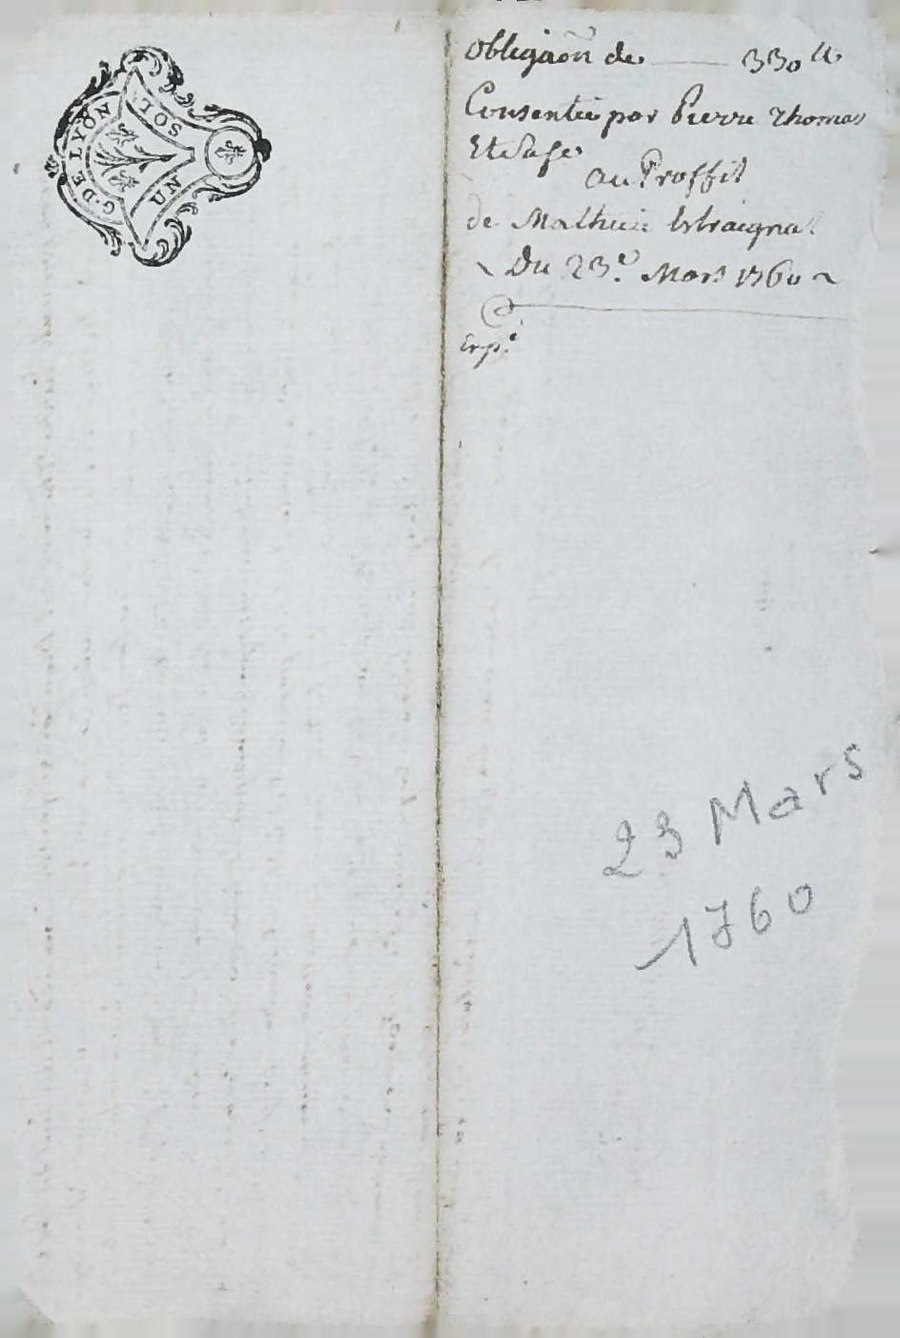 G. DE LYON
UN SOL
Obligaōn de 330 ₶
Consentie par Pierre Thomas
Et Sa fe
au Proffit
de Mathieu
Du 23e. Mars 1760
Exp.é
23 Mars
1760